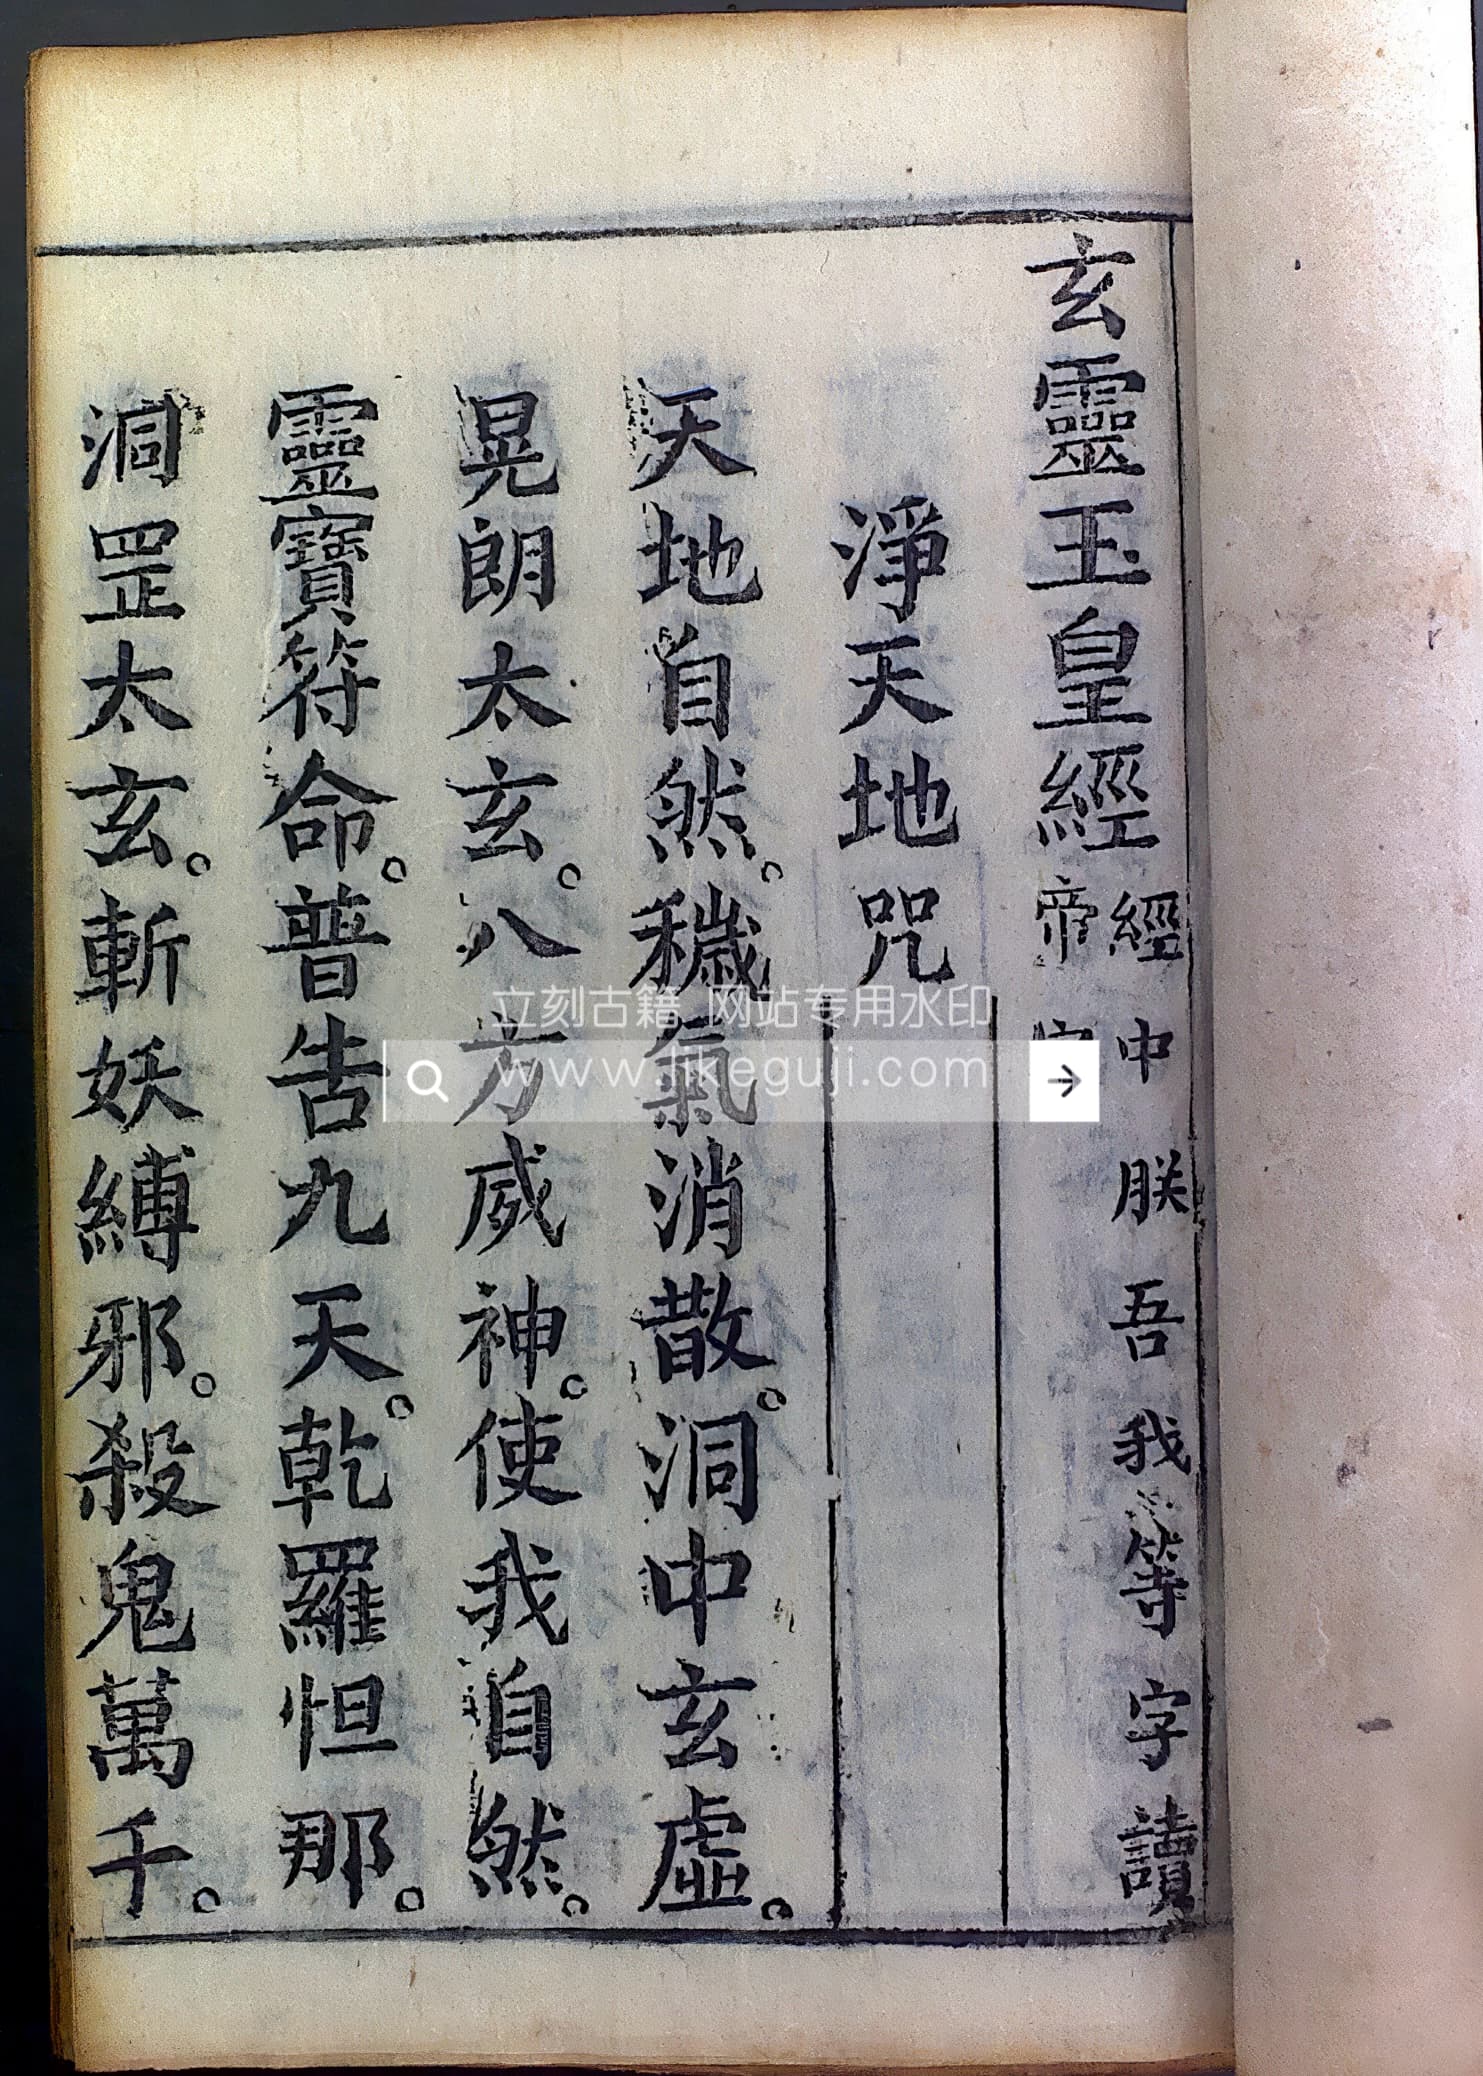 玄靈玉皇經
經中朕吾我等字讀
帝字
淨天地咒
天地自然。穢氣消散。洞中玄虛。
晃朗太玄。八方威神。使我自然。
靈寶符命。普告九天。乾羅怛那。
洞罡太玄。斬妖縛邪。殺鬼萬千。
立刻古籍 网站专用水印
www.likeguji.com